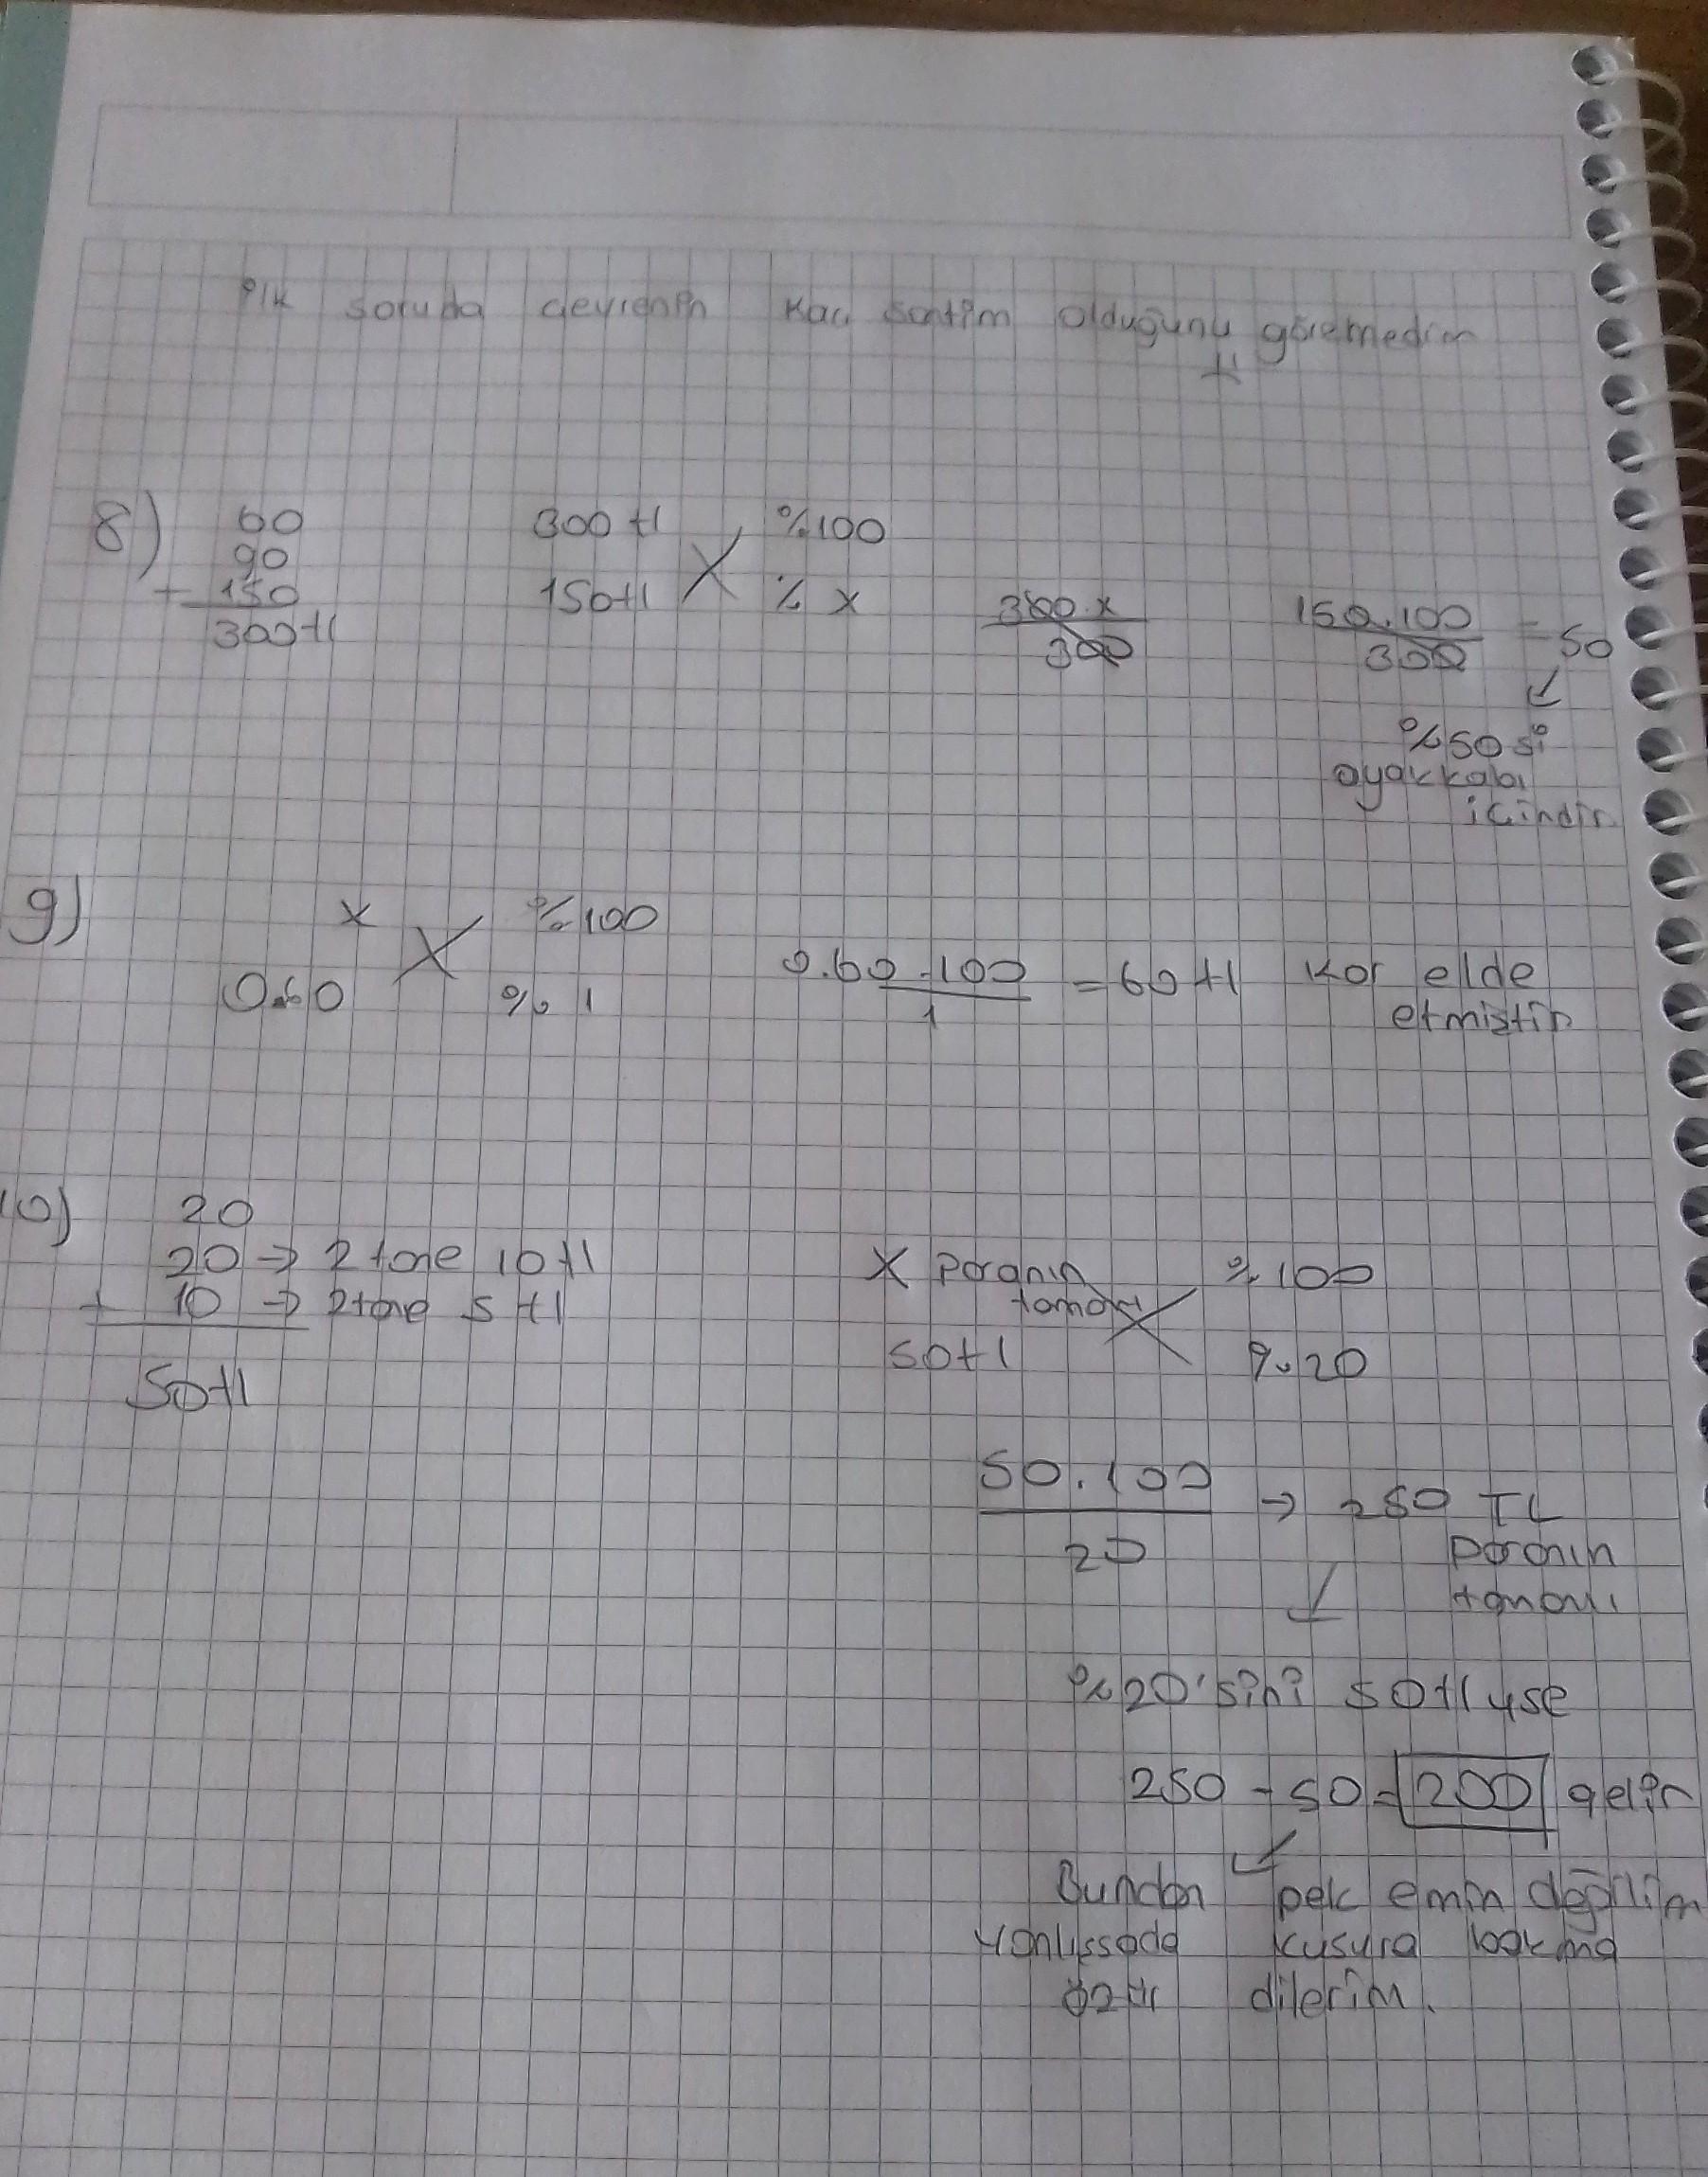 İlk soruda çevrenin kaç santim olduğunu göremedim
8) 60
90
+ 150
300tl
300 tl %100
150tl % x
300.x
300
150.100 = 50
300
%50 si
ayakkabı
içindir
9) x %100
0.60 % 1
0.60.100 = 60 tl kar elde
1 etmiştir
10) 20
20 → 2 tane 10 tl
+ 10 → 2 tane 5 tl
50tl
x paranın %100
tamamı
50tl %20
50.100 → 250 TL
20 paranın
tamamı
%20'sini 50tl yse
250 - 50 = 200 gelir
Bundan pek emin değilim
yanlışsada kusura bakma
özür dilerim.